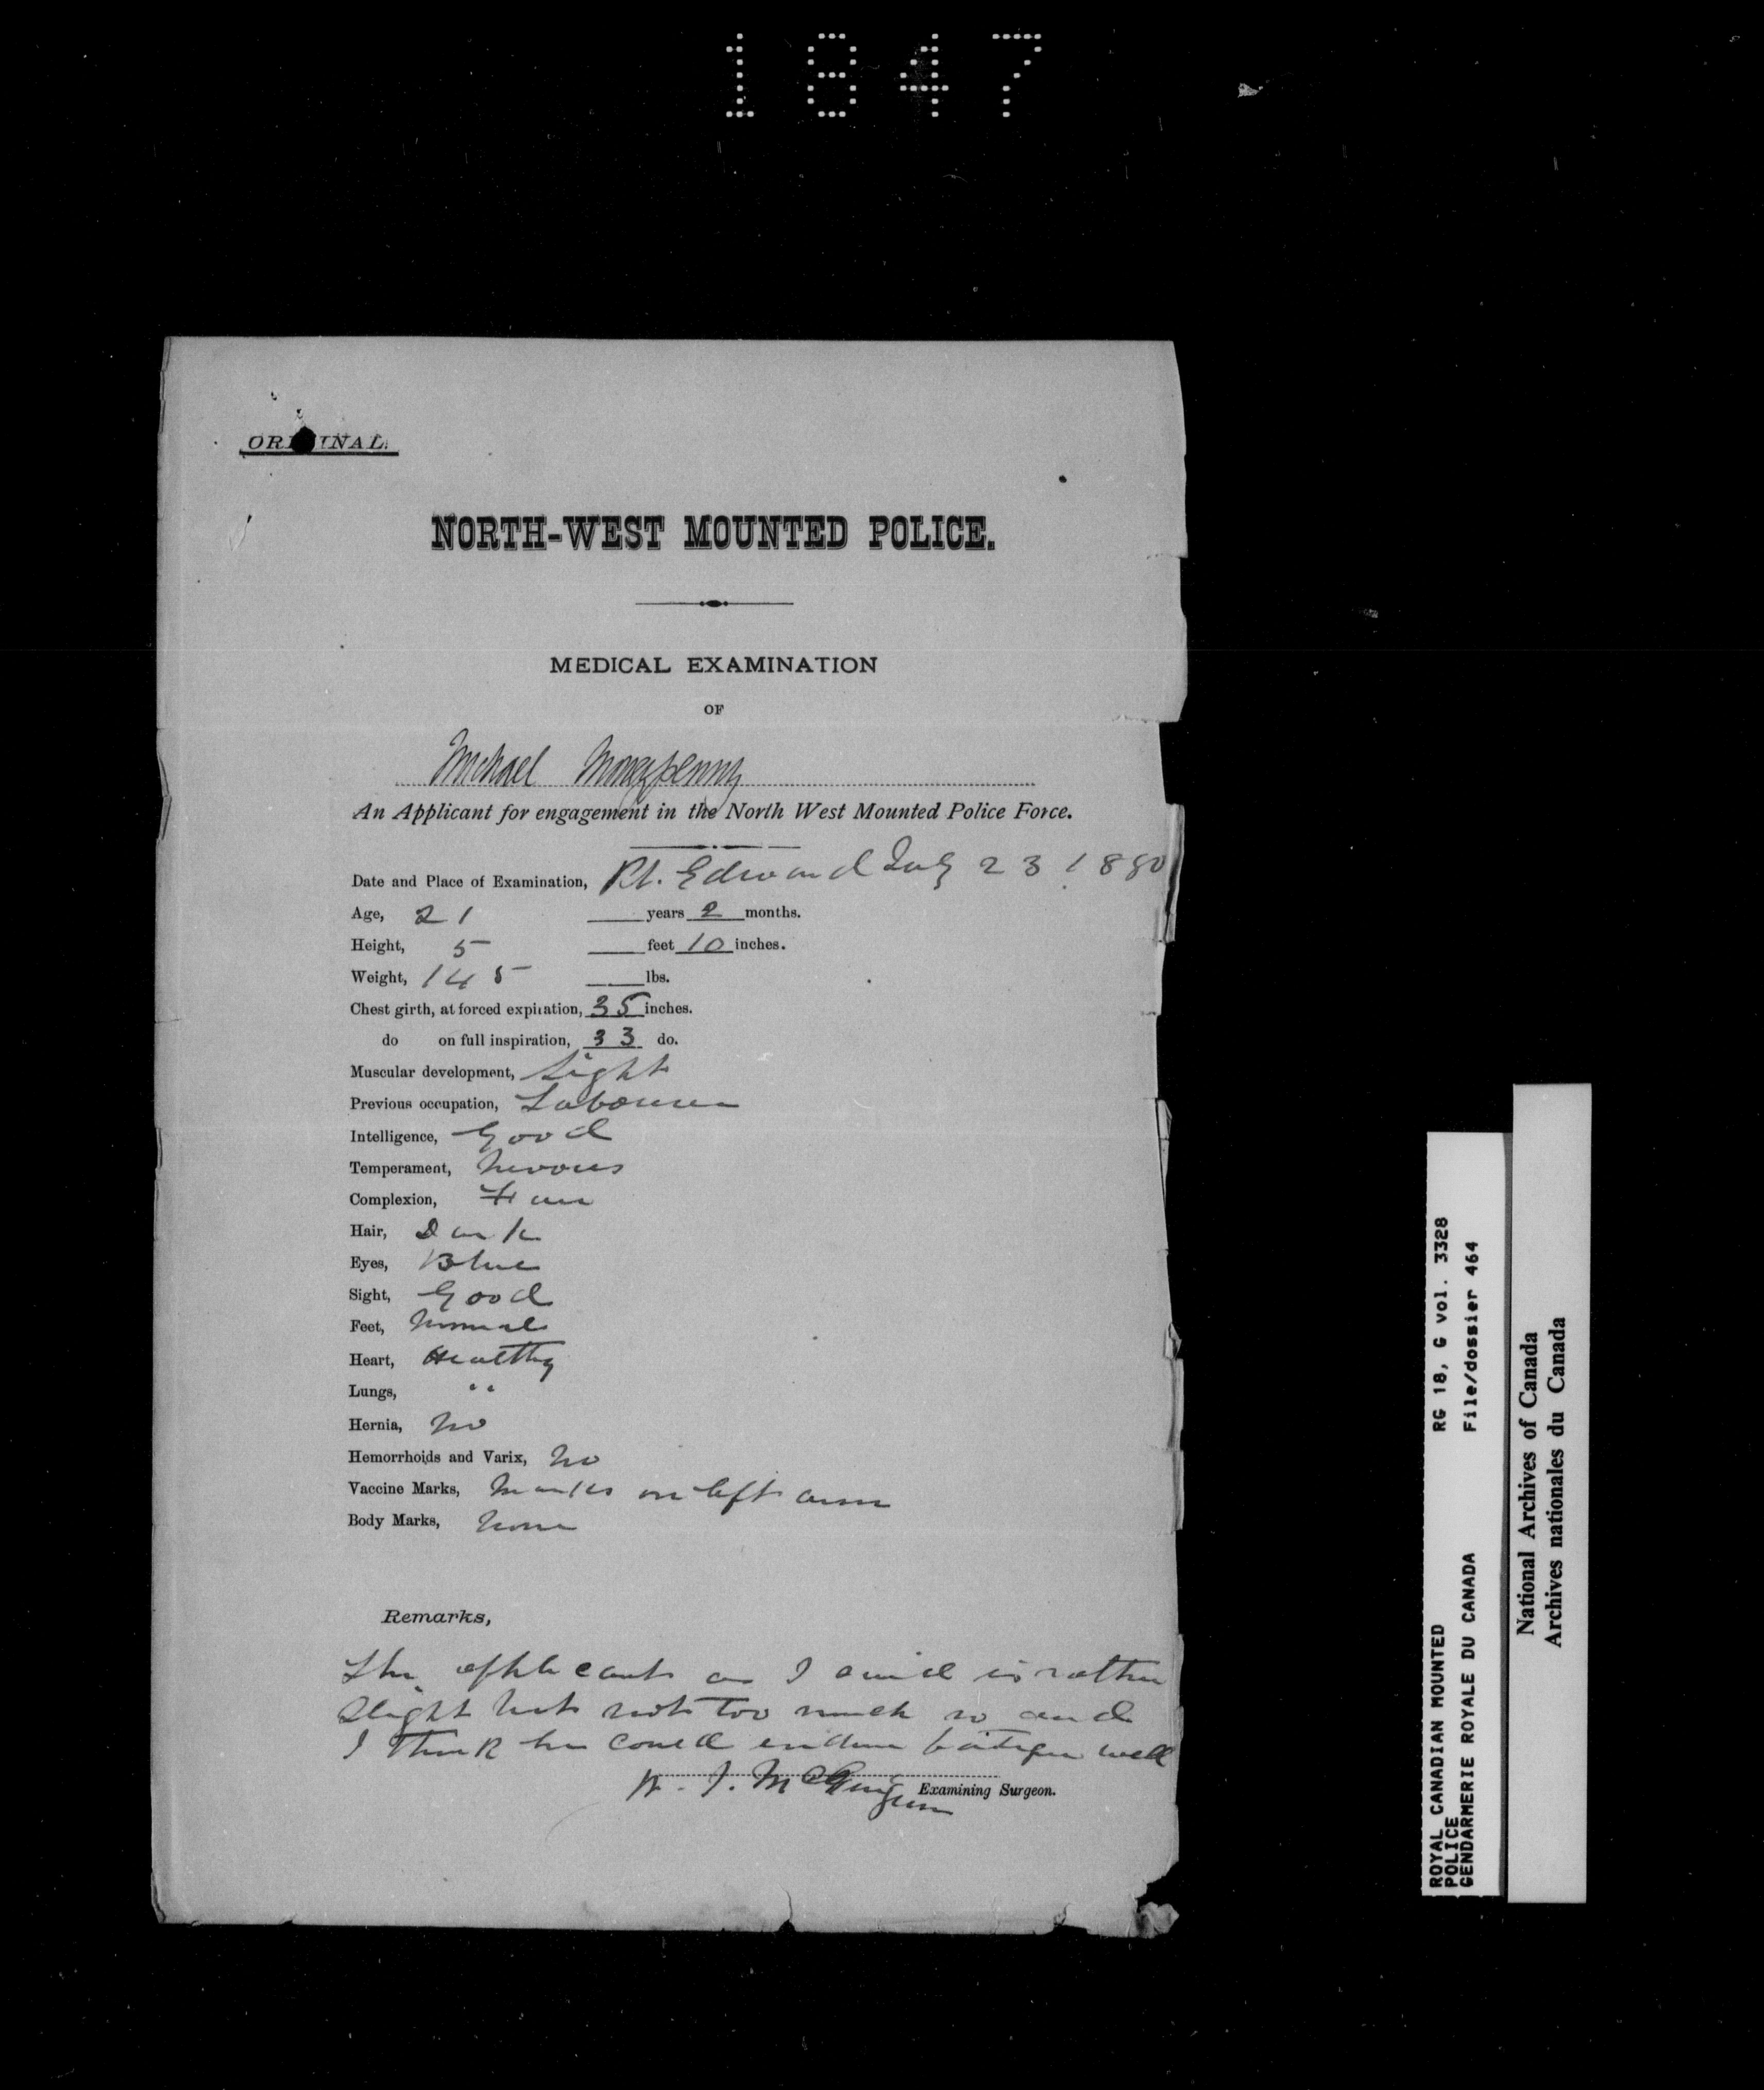 1847
ORIGINAL.
NORTH-WEST MOUNTED POLICE.
MEDICAL EXAMINATION
OF
Michael Moneypenny
An Applicant for engagement in the North West Mounted Police Force.
Date and Place of Examination, Pt. Edward July 23 1880
Age, 21 years 2 months.
Height, 5 feet 10 inches.
Weight, 145 lbs.
Chest girth, at forced expiration, 35 inches.
do on full inspiration, 33 do.
Muscular development, Light
Previous occupation, Labourer
Intelligence, Good
Temperament, Nervous
Complexion, Fair
Hair, Dark
Eyes, Blue
Sight, Good
Feet, Normal
Heart, Healthy
Lungs, "
Hernia, No
Hemorrhoids and Varix, No
Vaccine Marks, Marks on left arm
Body Marks, None
Remarks,
The applicant as I said is rather
slight but not too much so and
I think he could endure fatigue well
McGuigan Examining Surgeon.
ROYAL CANADIAN MOUNTED RG 18, G vol. 3328
POLICE
GENDARMERIE ROYALE DU CANADA File/dossier 464
National Archives of Canada
Archives nationales du Canada